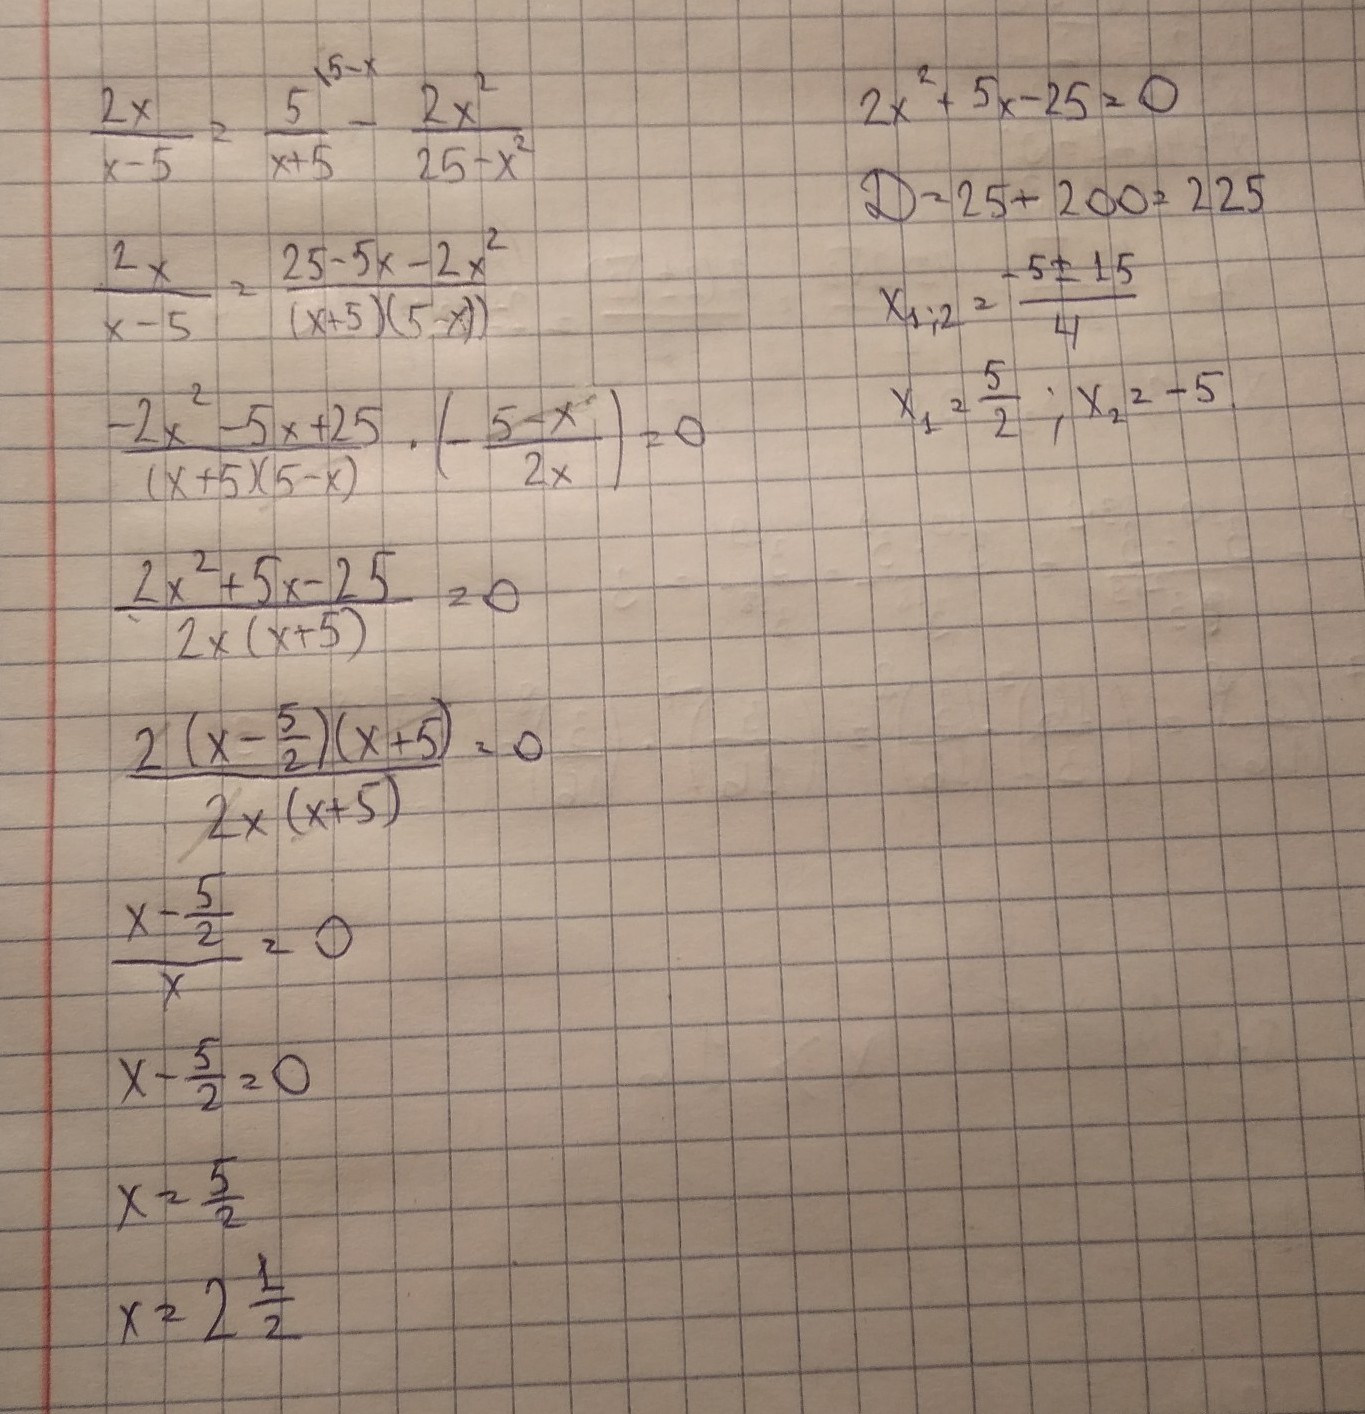 2x/(x-5) = 5/(x+5) \5-x - 2x²/(25-x²)
2x/(x-5) = (25-5x-2x²)/((x+5)(5-x))
(-2x²-5x+25)/((x+5)(5-x)) · (-(5-x)/(2x)) = 0
(2x²+5x-25)/(2x(x+5)) = 0
2(x-5/2)(x+5)/(2x(x+5)) = 0
(x-5/2)/x = 0
x-5/2 = 0
x = 5/2
x = 2 1/2
2x²+5x-25=0
D=25+200=225
x₁;₂ = (-5±15)/4
x₁ = 5/2 ; x₂ = -5